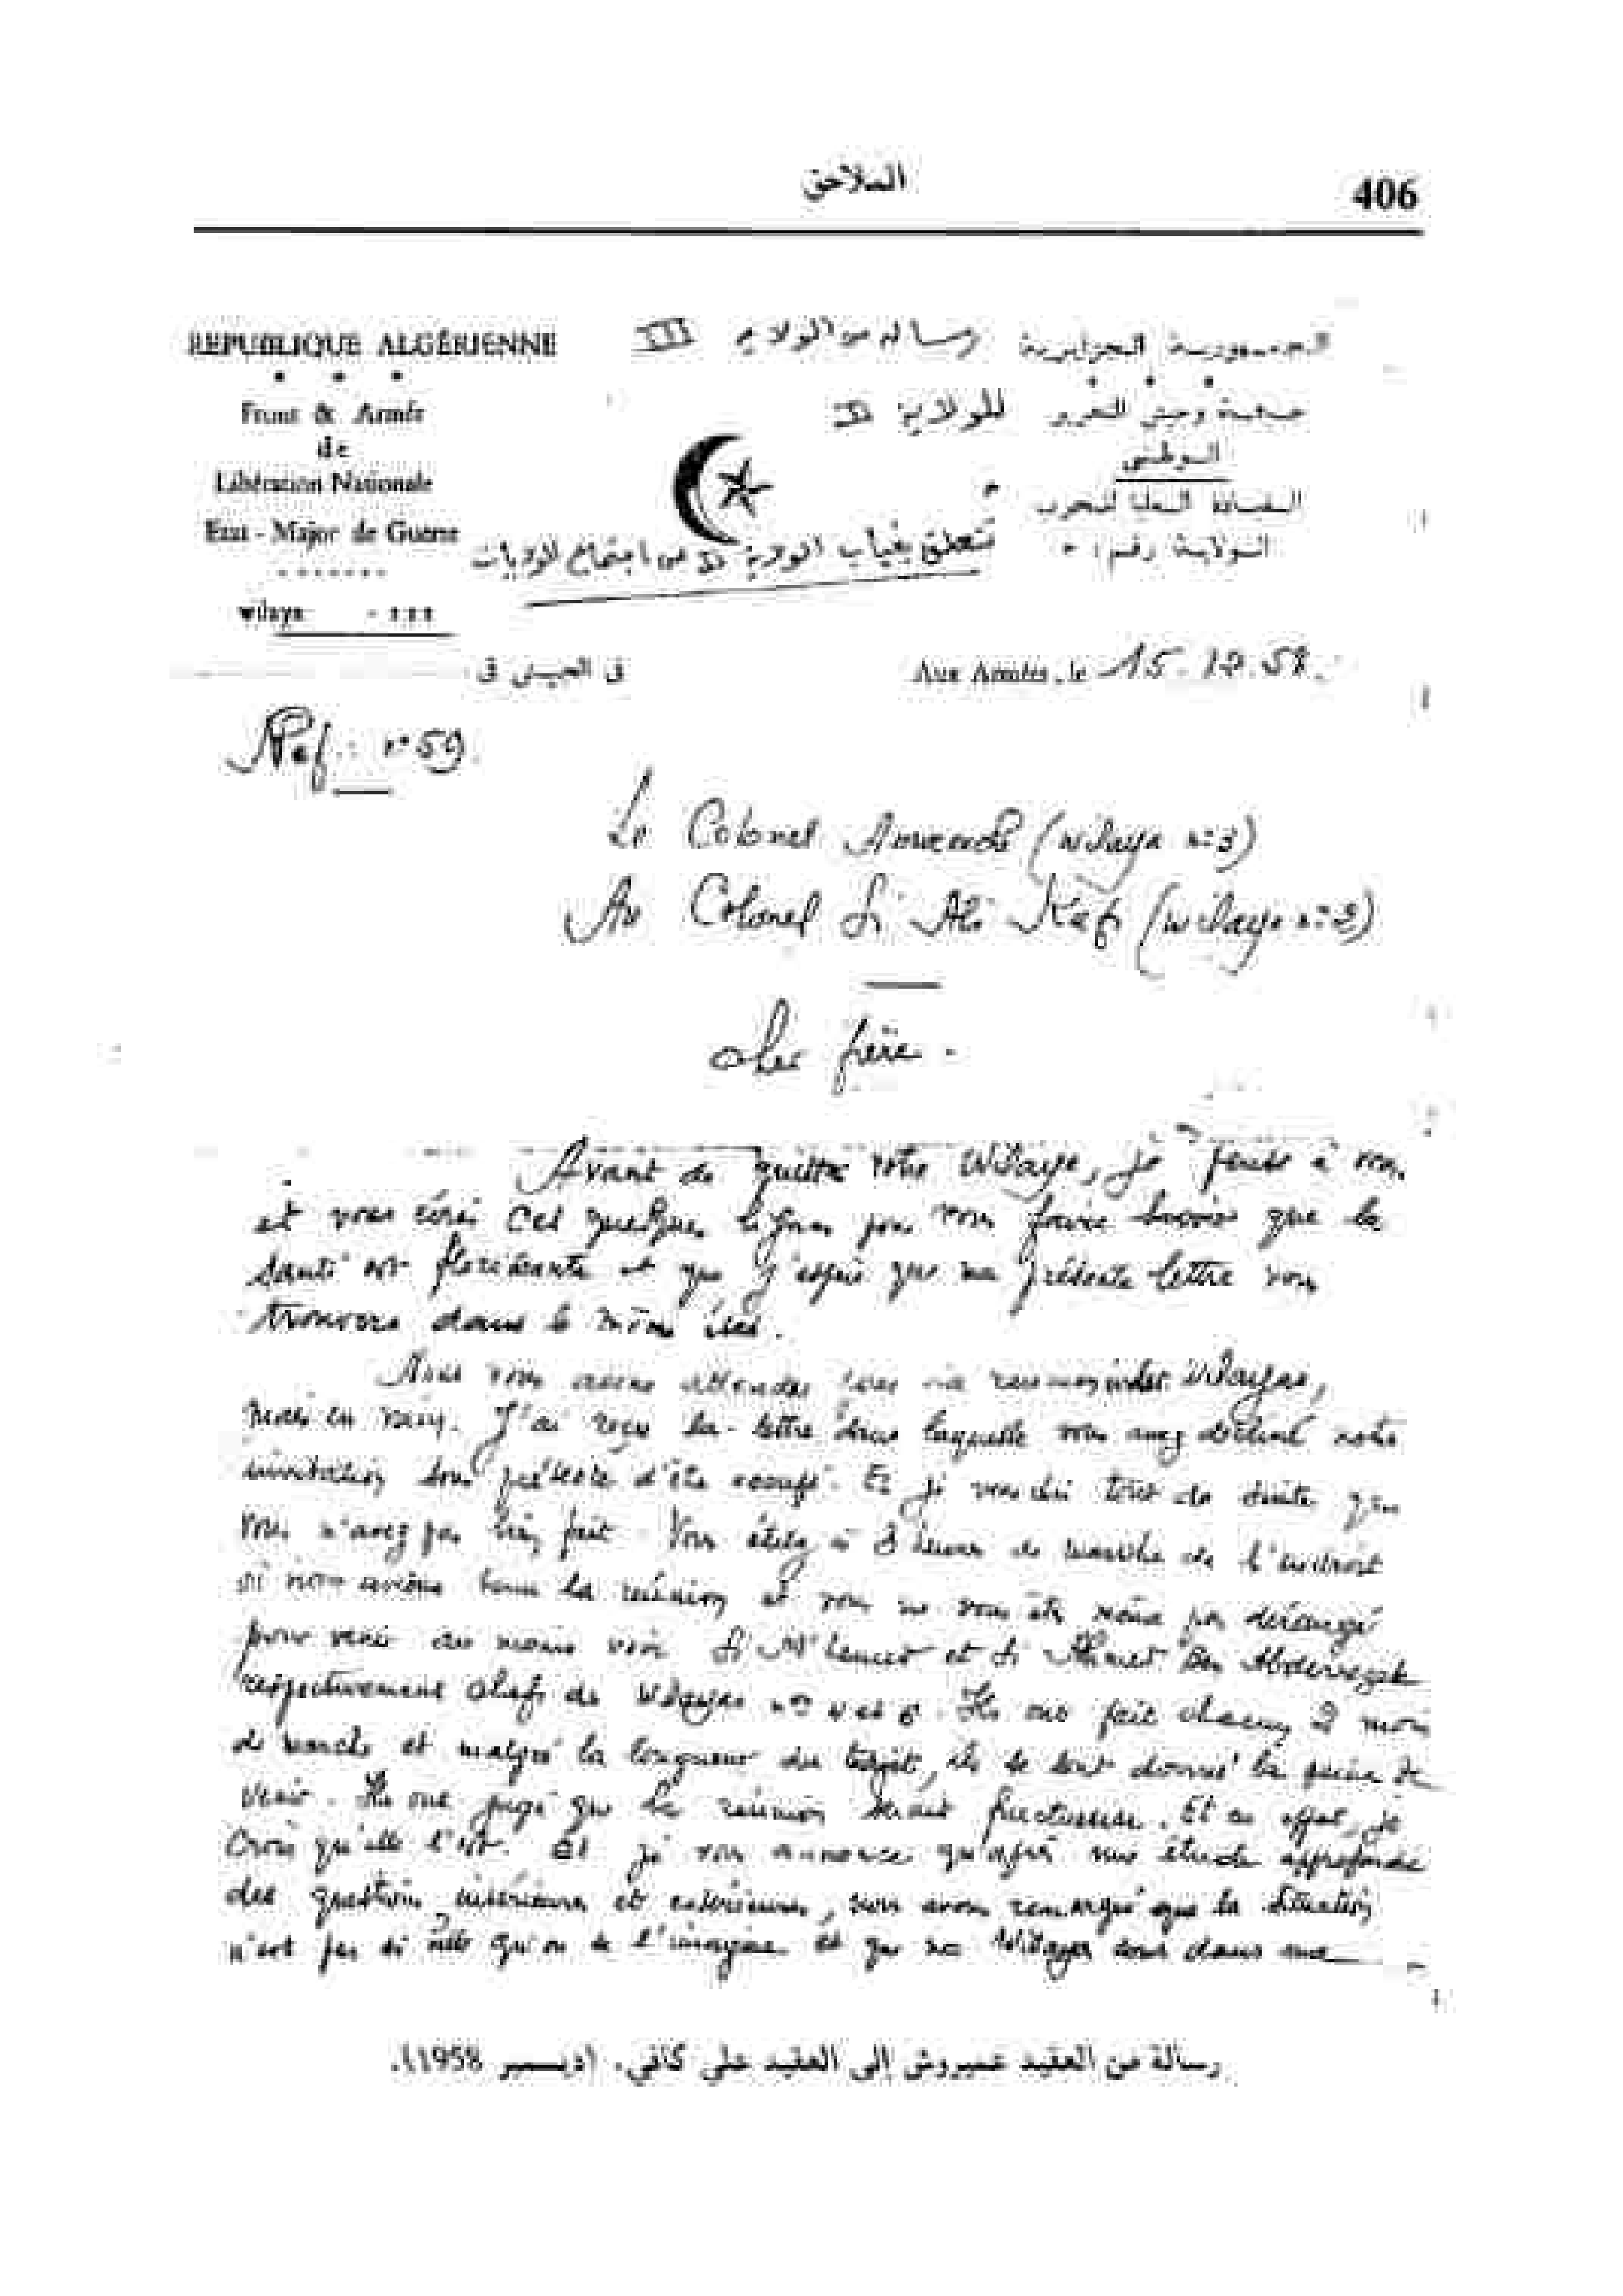 406
الملاحق
REPUBLIQUE ALGÉRIENNE
Front & Armée
de
Libération Nationale
Etat - Major de Guerre
wilaya
رسالة من الولاية III
للولاية II
تتعلق بغياب الولاية II من اجتماع الولايات
الجمهورية الجزائرية
جبهة وجيش التحرير
الوطني
القيادة العليا للحرب
الولاية رقم
في الجيش في
Aux Armées, le 15.12.58.
Ref: n° 59.
Le Colonel Amirouche (wilaya n° 3)
Au Colonel Si Ali Kafi (wilaya n°
Cher frère.
Avant de quitter votre Wilaya, je pense à vous
et vous écris ces quelques lignes pour vous faire savoir que la
santé est florissante et que j'espère que ma présente lettre vous
trouvera dans le même état.
Nous vous avions attendu wilayas,
mais en vain. J'ai reçu la lettre dans laquelle vous avez décliné notre
invitation sous prétexte d'être occupé. Et je vous dis tout de suite que
vous n'avez pas bien fait. Vous étiez à 3 heures de marche de l'endroit
où nous avions tenu la réunion et vous ne vous êtes même pas dérangé
pour venir au moins voir Si M'hamed et Si Ahmed Ben Abderrezak
respectivement chefs des Wilayas n°s 4 et 6. Ils ont fait chacun 2 mois
de marche et malgré la longueur du trajet, ils se sont donné la peine de
venir. Ils ont jugé que la réunion serait fructueuse. Et en effet, je
crois qu'elle l'est. Et je vous annonce qu'après une étude approfondie
des questions intérieures et extérieures, nous avons remarqué que la situation
n'est pas si belle qu'on se l'imagine et que nos Wilayas sont dans une
رسالة من العقيد عميروش إلى العقيد علي كافي. (ديسمبر 1958).